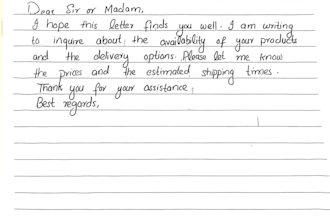 Dear Sir or Madam,
I hope this letter finds you well. I am writing
to inquire about the availability of your products
and the delivery options. Please let me know
the prices and the estimated shipping times.
Thank you for your assistance;
Best regards,